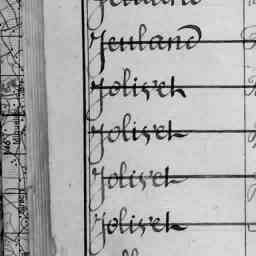 Jeuland
Jolivet
Jolivet
Jolivet
Jolivet